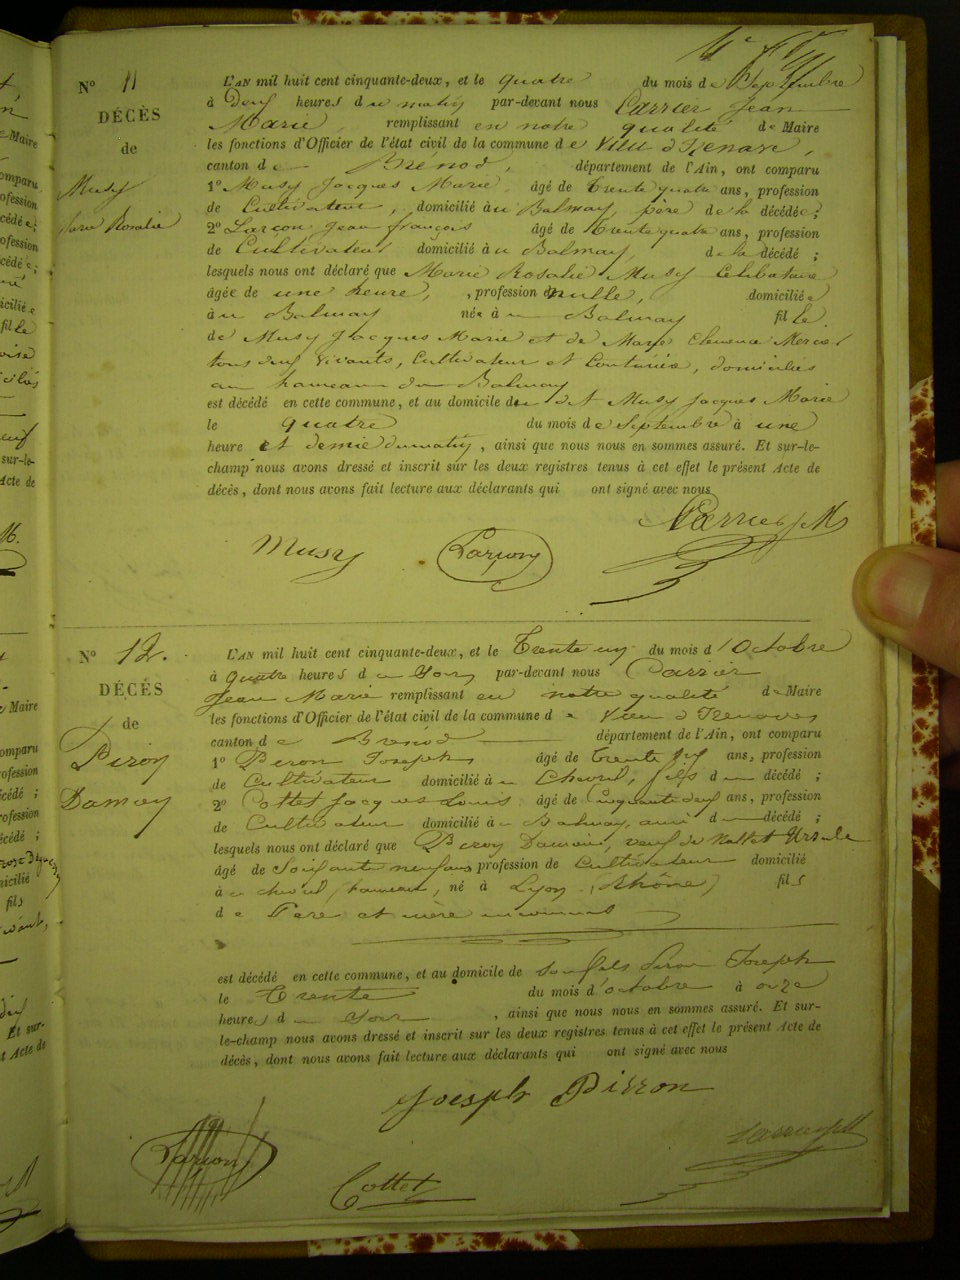 N° 11
DÉCÈS
de
Musy
Marie Rosalie
L'AN mil huit cent cinquante-deux, et le quatre du mois de Septembre
à Deux heures du matin par-devant nous Carrier Jean
Marie, remplissant en notre qualité de Maire
les fonctions d'Officier de l'état civil de la commune de Vieu d'Izenave,
canton de Brénod, département de l'Ain, ont comparu
1° Musy Jacques Marie, âgé de trente quatre ans, profession
de Cultivateur, domicilié au Balmay, père de la décédée;
2° Larçon Jean françois âgé de trente quatre ans, profession
de Cultivateur domicilié au Balmay, de la décédé ;
lesquels nous ont déclaré que Marie Rosalie Musy Celibataire
âgée de une heure, , profession de nulle, domiciliée
à u Balmay née à u Balmay fille
de Musy Jacques Marie et de Marie Clemence Mercier
tous deux vivants, Cultivateur et Couturière, domiciliés
au hameau du Balmay
est décédé en cette commune, et au domicile du dit Musy Jacques Marie
le quatre du mois de Septembre à une
heure et demie du matin, ainsi que nous nous en sommes assuré. Et sur-le-
champ nous avons dressé et inscrit sur les deux registres tenus à cet effet le présent Acte de
décès, dont nous avons fait lecture aux déclarants qui ont signé avec nous
Carrier JM
Musy Larçon
N° 12.
DÉCÉS
de
Piron
Damien
L'AN mil huit cent cinquante-deux, et le Trente un du mois d'Octobre
à quatre heures du Soir par-devant nous Carrier
Jean Marie remplissant en notre qualité de Maire
les fonctions d'Officier de l'état civil de la commune de Vieu d'Izenave
canton de Brénod département de l'Ain, ont comparu
1° Piron Joseph âgé de trente six ans, profession
de Cultivateur domicilié à Chevril, fils du décédé ;
2° Cottet Jacques Louis âgé de Cinquante deux ans, profession
de Cultivateur domicilié à u Balmay, ami du décédé ;
lesquels nous ont déclaré que Piron Damien, veuf de Mallet Ursule
âgé de Soixante neuf ans profession de Cultivateur domicilié
à Chevril (hameau), né à Lyon (Rhône) fils
de Père et mère inconnus
est décédé en cette commune, et au domicile de son fils Piron Joseph
le Trente du mois d'octobre à onze
heures du Soir, ainsi que nous nous en sommes assuré. Et sur-
le-champ nous avons dressé et inscrit sur les deux registres tenus à cet effet le présent Acte de
décès, dont nous avons fait lecture aux déclarants qui ont signé avec nous
Joesph Pirron
Larçon Carrier JM
Cottet